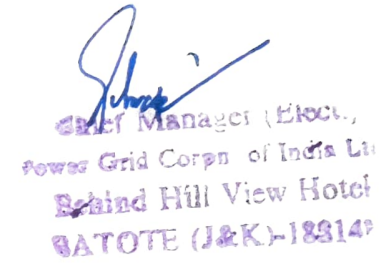 Chief Manager (Elect.,
Power Grid Corpn of India Lt
Behind Hill View Hotel
BATOTE (J&K)-18214